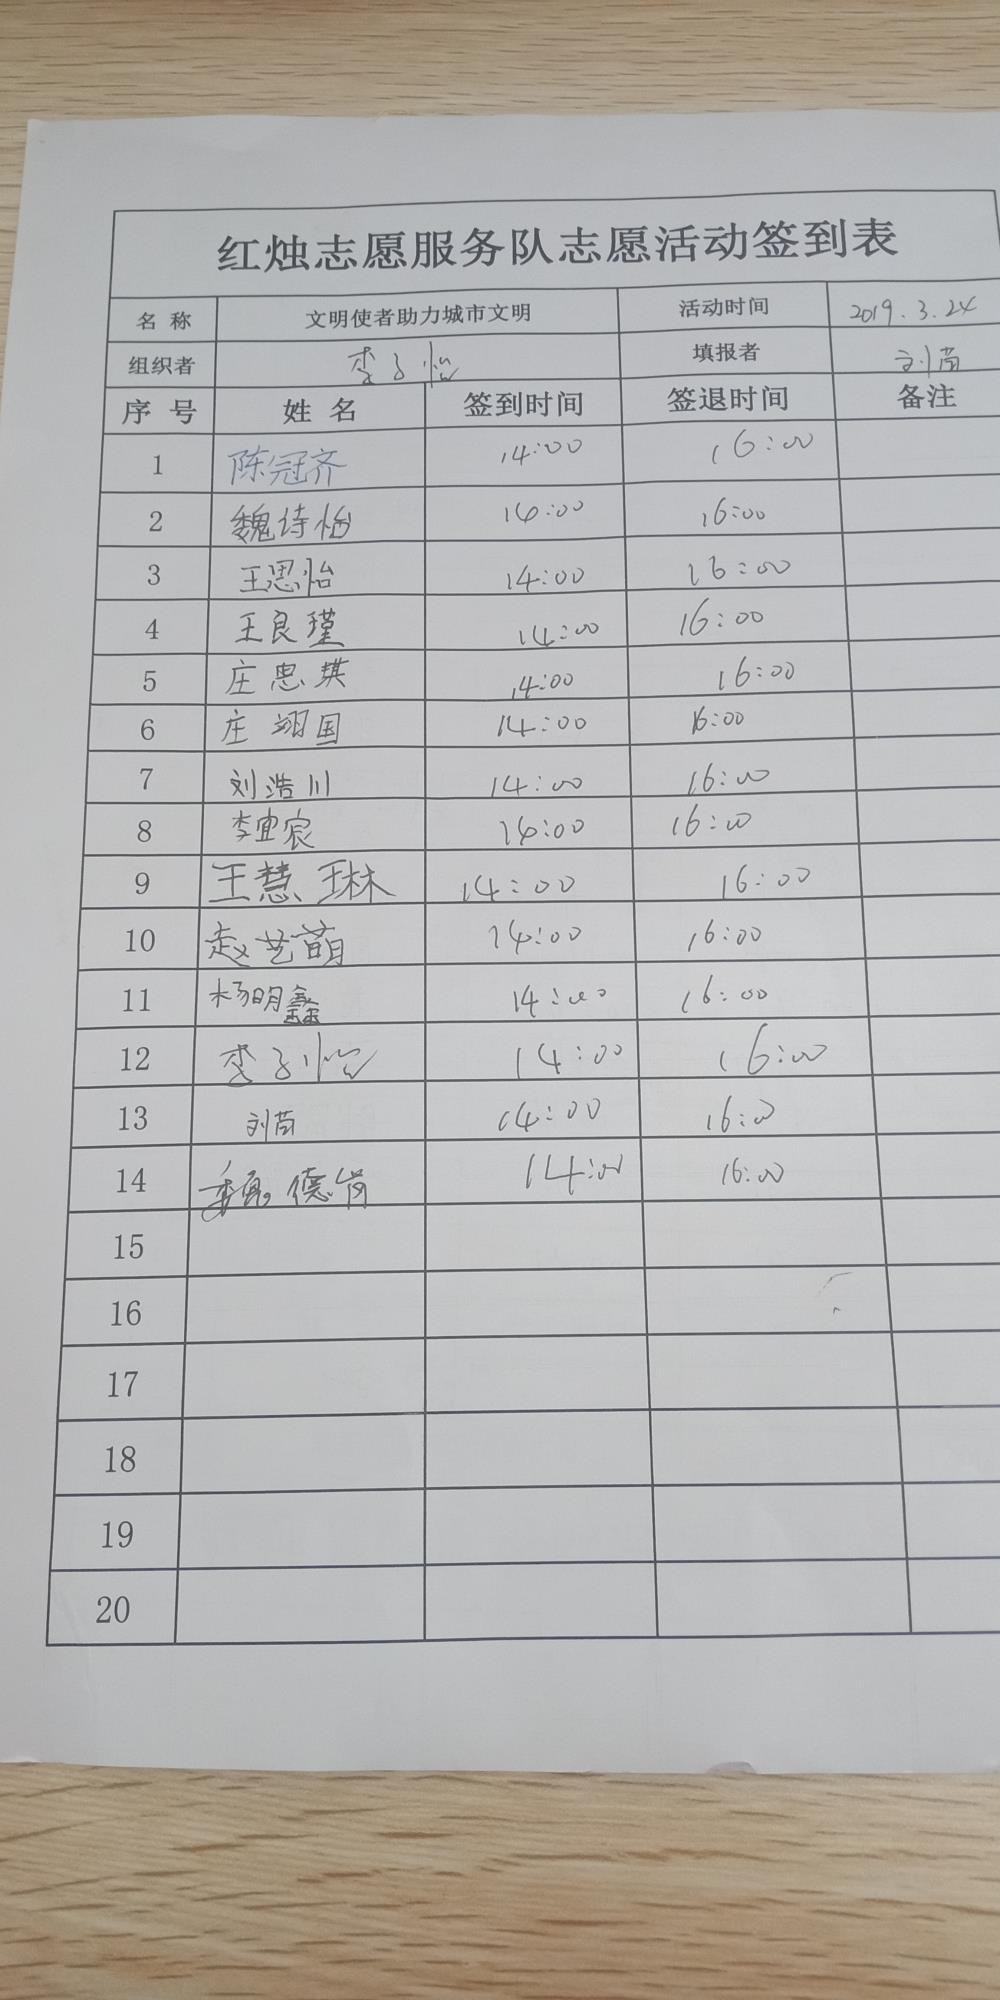 红烛志愿服务队志愿活动签到表
名 称 文明使者助力城市文明 活动时间 2019.3.24
组织者 李子怡 填报者 刘茵
序 号 姓 名 签到时间 签退时间 备注
1 陈冠齐 14:00 16:00
2 魏诗怡 14:00 16:00
3 王思怡 14:00 16:00
4 王良瑾 14:00 16:00
5 庄忠琪 14:00 16:00
6 庄翊国 14:00 16:00
7 刘浩川 14:00 16:00
8 李宜宸 14:00 16:00
9 王慧琳 14:00 16:00
10 赵艺萌 14:00 16:00
11 杨明鑫 14:00 16:00
12 李子怡 14:00 16:00
13 刘茵 14:00 16:00
14 魏德尚 14:00 16:00
15
16
17
18
19
20